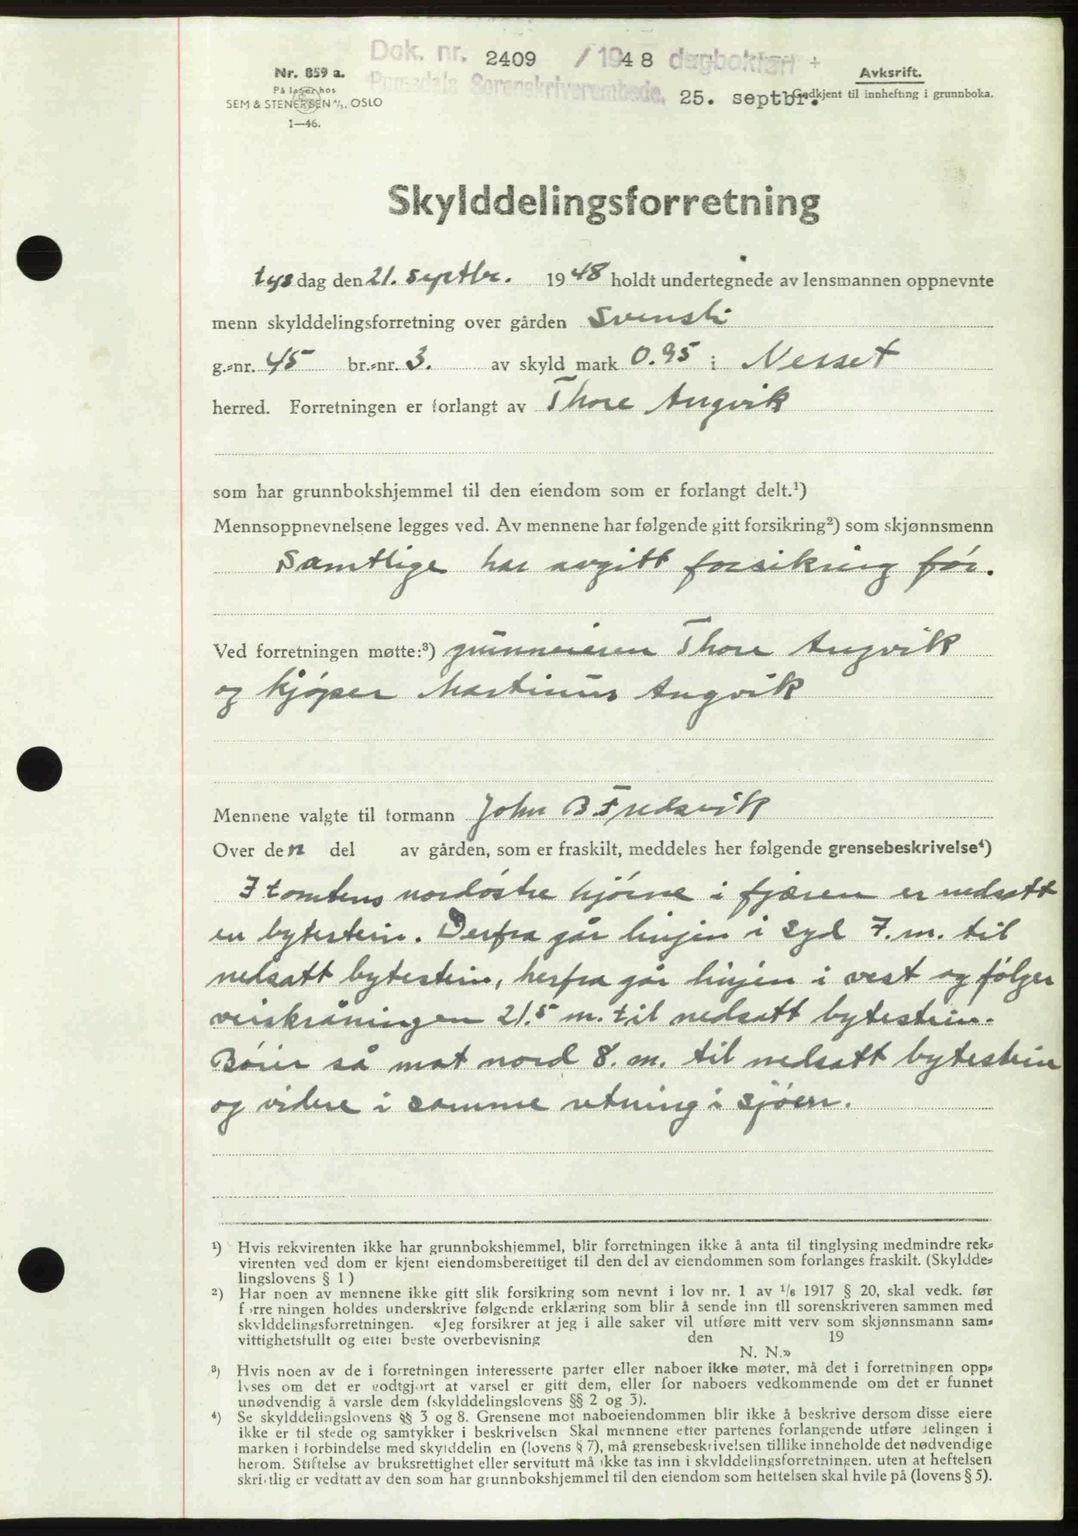 Dok. nr. 2409 / 1948 dagbokført
Romsdals Sorenskriverembede. 25. septbr.
Nr. 859 a.
På lager hos
SEM & STENERSEN A/S. OSLO
1—46.
Avskrift.
Godkjent til innhefting i grunnboka.
Skylddelingsforretning
tysdag den 21. septbr. 1948 holdt undertegnede av lensmannen oppnevnte
menn skylddelingsforretning over gården Svensli
g.-nr. 45 br.-nr. 3. av skyld mark 0.95 i Nesset
herred. Forretningen er forlangt av Thore Angvik
som har grunnbokshjemmel til den eiendom som er forlangt delt.¹)
Mennsoppnevnelsene legges ved. Av mennene har følgende gitt forsikring²) som skjønnsmenn
Samtlige har avgitt forsikring før.
Ved forretningen møtte:³) grunneieren Thore Angvik
og kjøper Martinus Angvik
Mennene valgte til formann John B Fredsvik
Over den del av gården, som er fraskilt, meddeles her følgende grensebeskrivelse⁴)
I tomtens nordøstre hjørne i fjæren er nedsatt
en bytestein. Derfra går linjen i syd 7. m. til
nedsatt bytestein, herfra går linjen i vest og følger
veiskråningen 21.5 m. til nedsatt bytestein.
Bøier så mot nord 8. m. til nedsatt bytestein
og videre i samme retning i sjøen.
¹) Hvis rekvirenten ikke har grunnbokshjemmel, blir forretningen ikke å anta til tinglysing medmindre rek-
virenten ved dom er kjent eiendomsberettiget til den del av eiendommen som forlanges fraskilt. (Skyldde-
lingslovens § 1)
²) Har noen av mennene ikke gitt slik forsikring som nevnt i lov nr. 1 av 1/6 1917 § 20, skal vedk. før
forretningen holdes underskrive følgende erklæring som blir å sende inn til sorenskriveren sammen med
skylddelingsforretningen. «Jeg forsikrer at jeg i alle saker vil utføre mitt verv som skjønnsmann sam-
vittighetsfullt og etter beste overbevisning den 19
N. N.»
³) Hvis noen av de i forretningen interesserte parter eller naboer ikke møter, må det i forretningen opp-
lyses om det er godtgjort at varsel er gitt dem, eller for naboers vedkommende om det er funnet
unødvendig å varsle dem (skylddelingslovens §§ 2 og 3).
⁴) Se skylddelingslovens §§ 3 og 8. Grensene mot naboeiendommen blir ikke å beskrive dersom disse eiere
ikke er til stede og samtykker i beskrivelsen Skal mennene etter partenes forlangende utføre delingen i
marken i forbindelse med skylddelingen (lovens § 7), må grensebeskrivelsen tillike inneholde det nødvendige
herom. Stiftelse av bruksrettighet eller servitutt må ikke tas inn i skylddelingsforretningen, uten at heftelsen
skriftlig er vedtatt av den som har grunnbokshjemmel til den eiendom som heftelsen skal hvile på (lovens § 5).